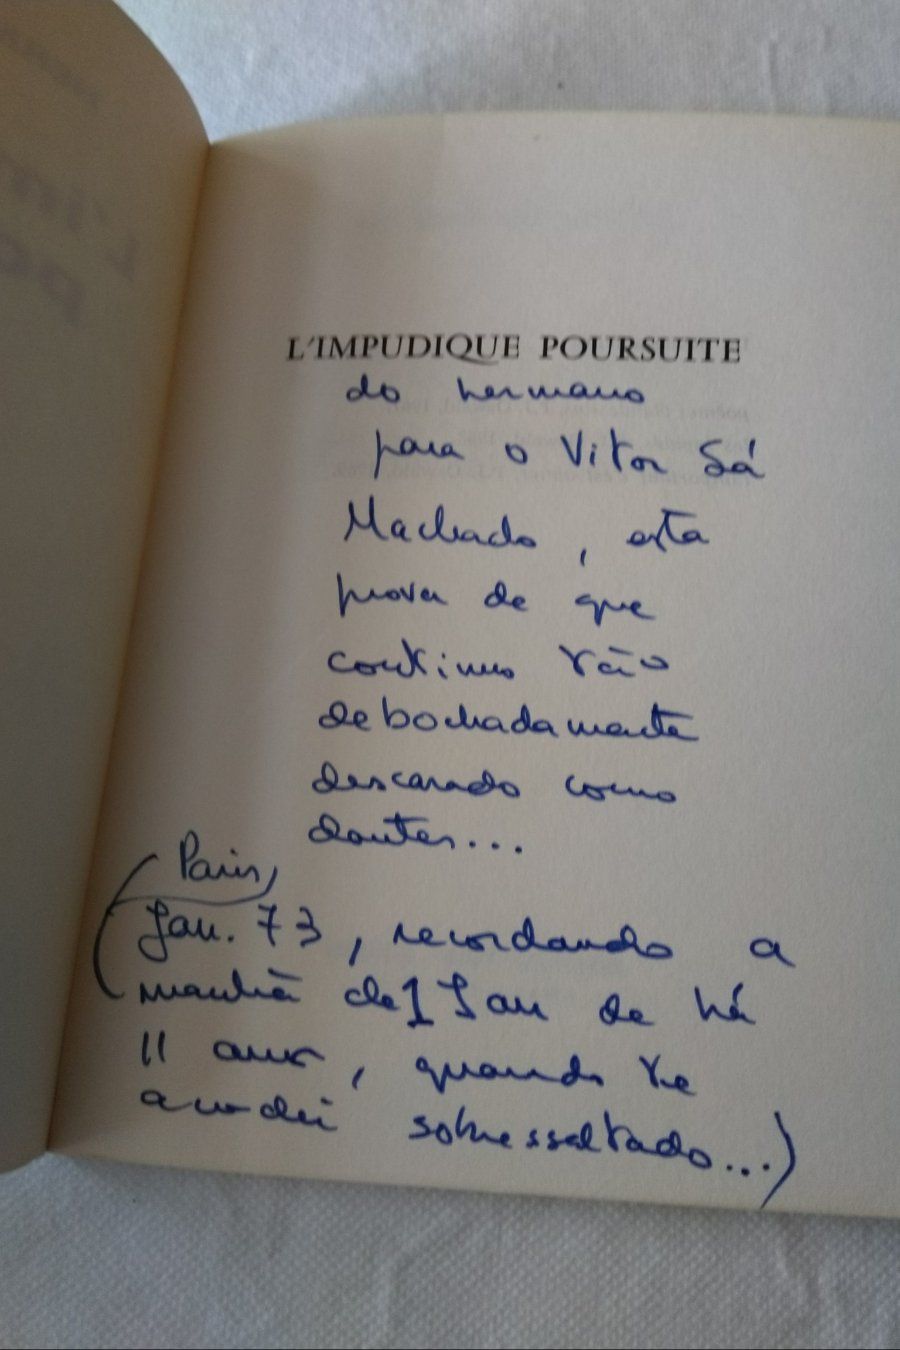 L'IMPUDIQUE POURSUITE
do hermano
para o Vitor Sá
Machado, esta
prova de que
continuo tão
debochadamente
descarado como
dantes...
(Paris,
Jan. 73, recordando a
manhã de 1 Jan de há
11 anos, quando te
acordei sobressaltado...)